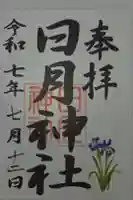 奉拝
日月神社
令和七年七月十二日